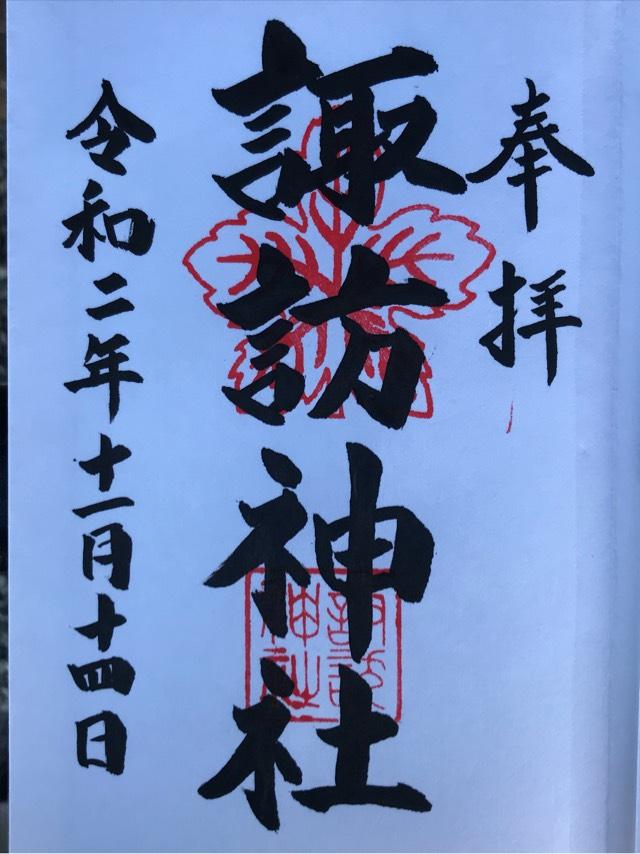 奉拝
諏訪神社
諏訪
神社
令和二年十一月十四日